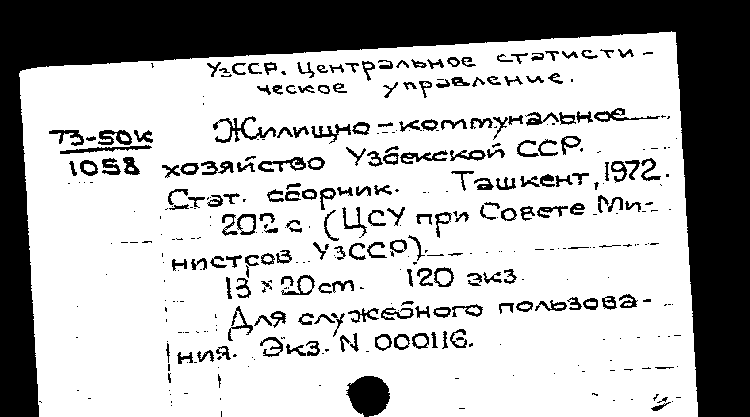 УзССР. Центральное статисти-
ческое управление.
73-50к
1058
Жилищно-коммунальное
хозяйство Узбекской ССР.
Стат. сборник. Ташкент, 1972.
202 с. (ЦСУ при Совете Ми-
нистров УзССР)
13 × 20 cm. 120 экз.
Для служебного пользова-
ния. Экз. N 000116.